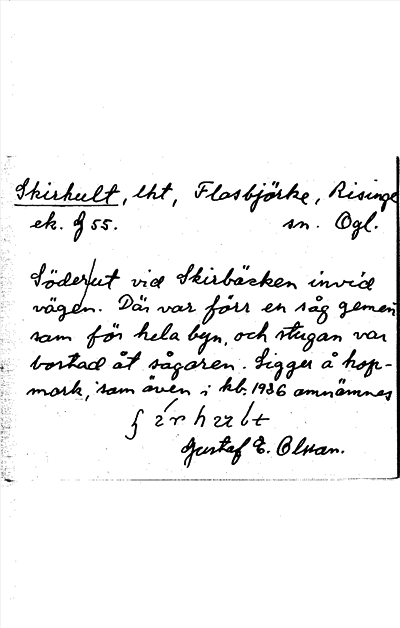 Skirhult, lht, Flasbjörke, Risinge
ek. J 55. sn. Ögl.
Söderut vid Skirbäcken invid
vägen. Där var förr en såg gemen
sam för hela byn, och stugan var
bostad åt sågaren. Ligger å hop-
mark, som även i kb. 1936 omnämnes
Gustaf E. Olsson.